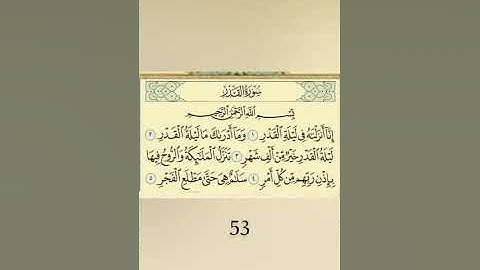 سُورَةُ القَدْرِ
بِسْمِ اللَّهِ الرَّحْمَٰنِ الرَّحِيمِ
إِنَّا أَنزَلْنَٰهُ فِى لَيْلَةِ الْقَدْرِ ١ وَمَا أَدْرَىٰكَ مَا لَيْلَةُ الْقَدْرِ ٢
لَيْلَةُ الْقَدْرِ خَيْرٌ مِّنْ أَلْفِ شَهْرٍ ٣ تَنَزَّلُ الْمَلَٰٓئِكَةُ وَالرُّوحُ فِيهَا
بِإِذْنِ رَبِّهِم مِّن كُلِّ أَمْرٍ ٤ سَلَٰمٌ هِىَ حَتَّىٰ مَطْلَعِ الْفَجْرِ ٥
53